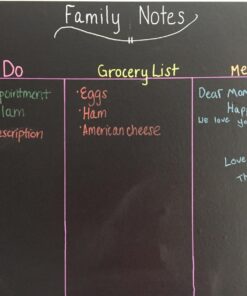 Family Notes
Do
ppointment
1am
escription
Grocery List
• Eggs
• Ham
• American cheese
Me
Dear Mom
Happ
We love yo
Love
Th